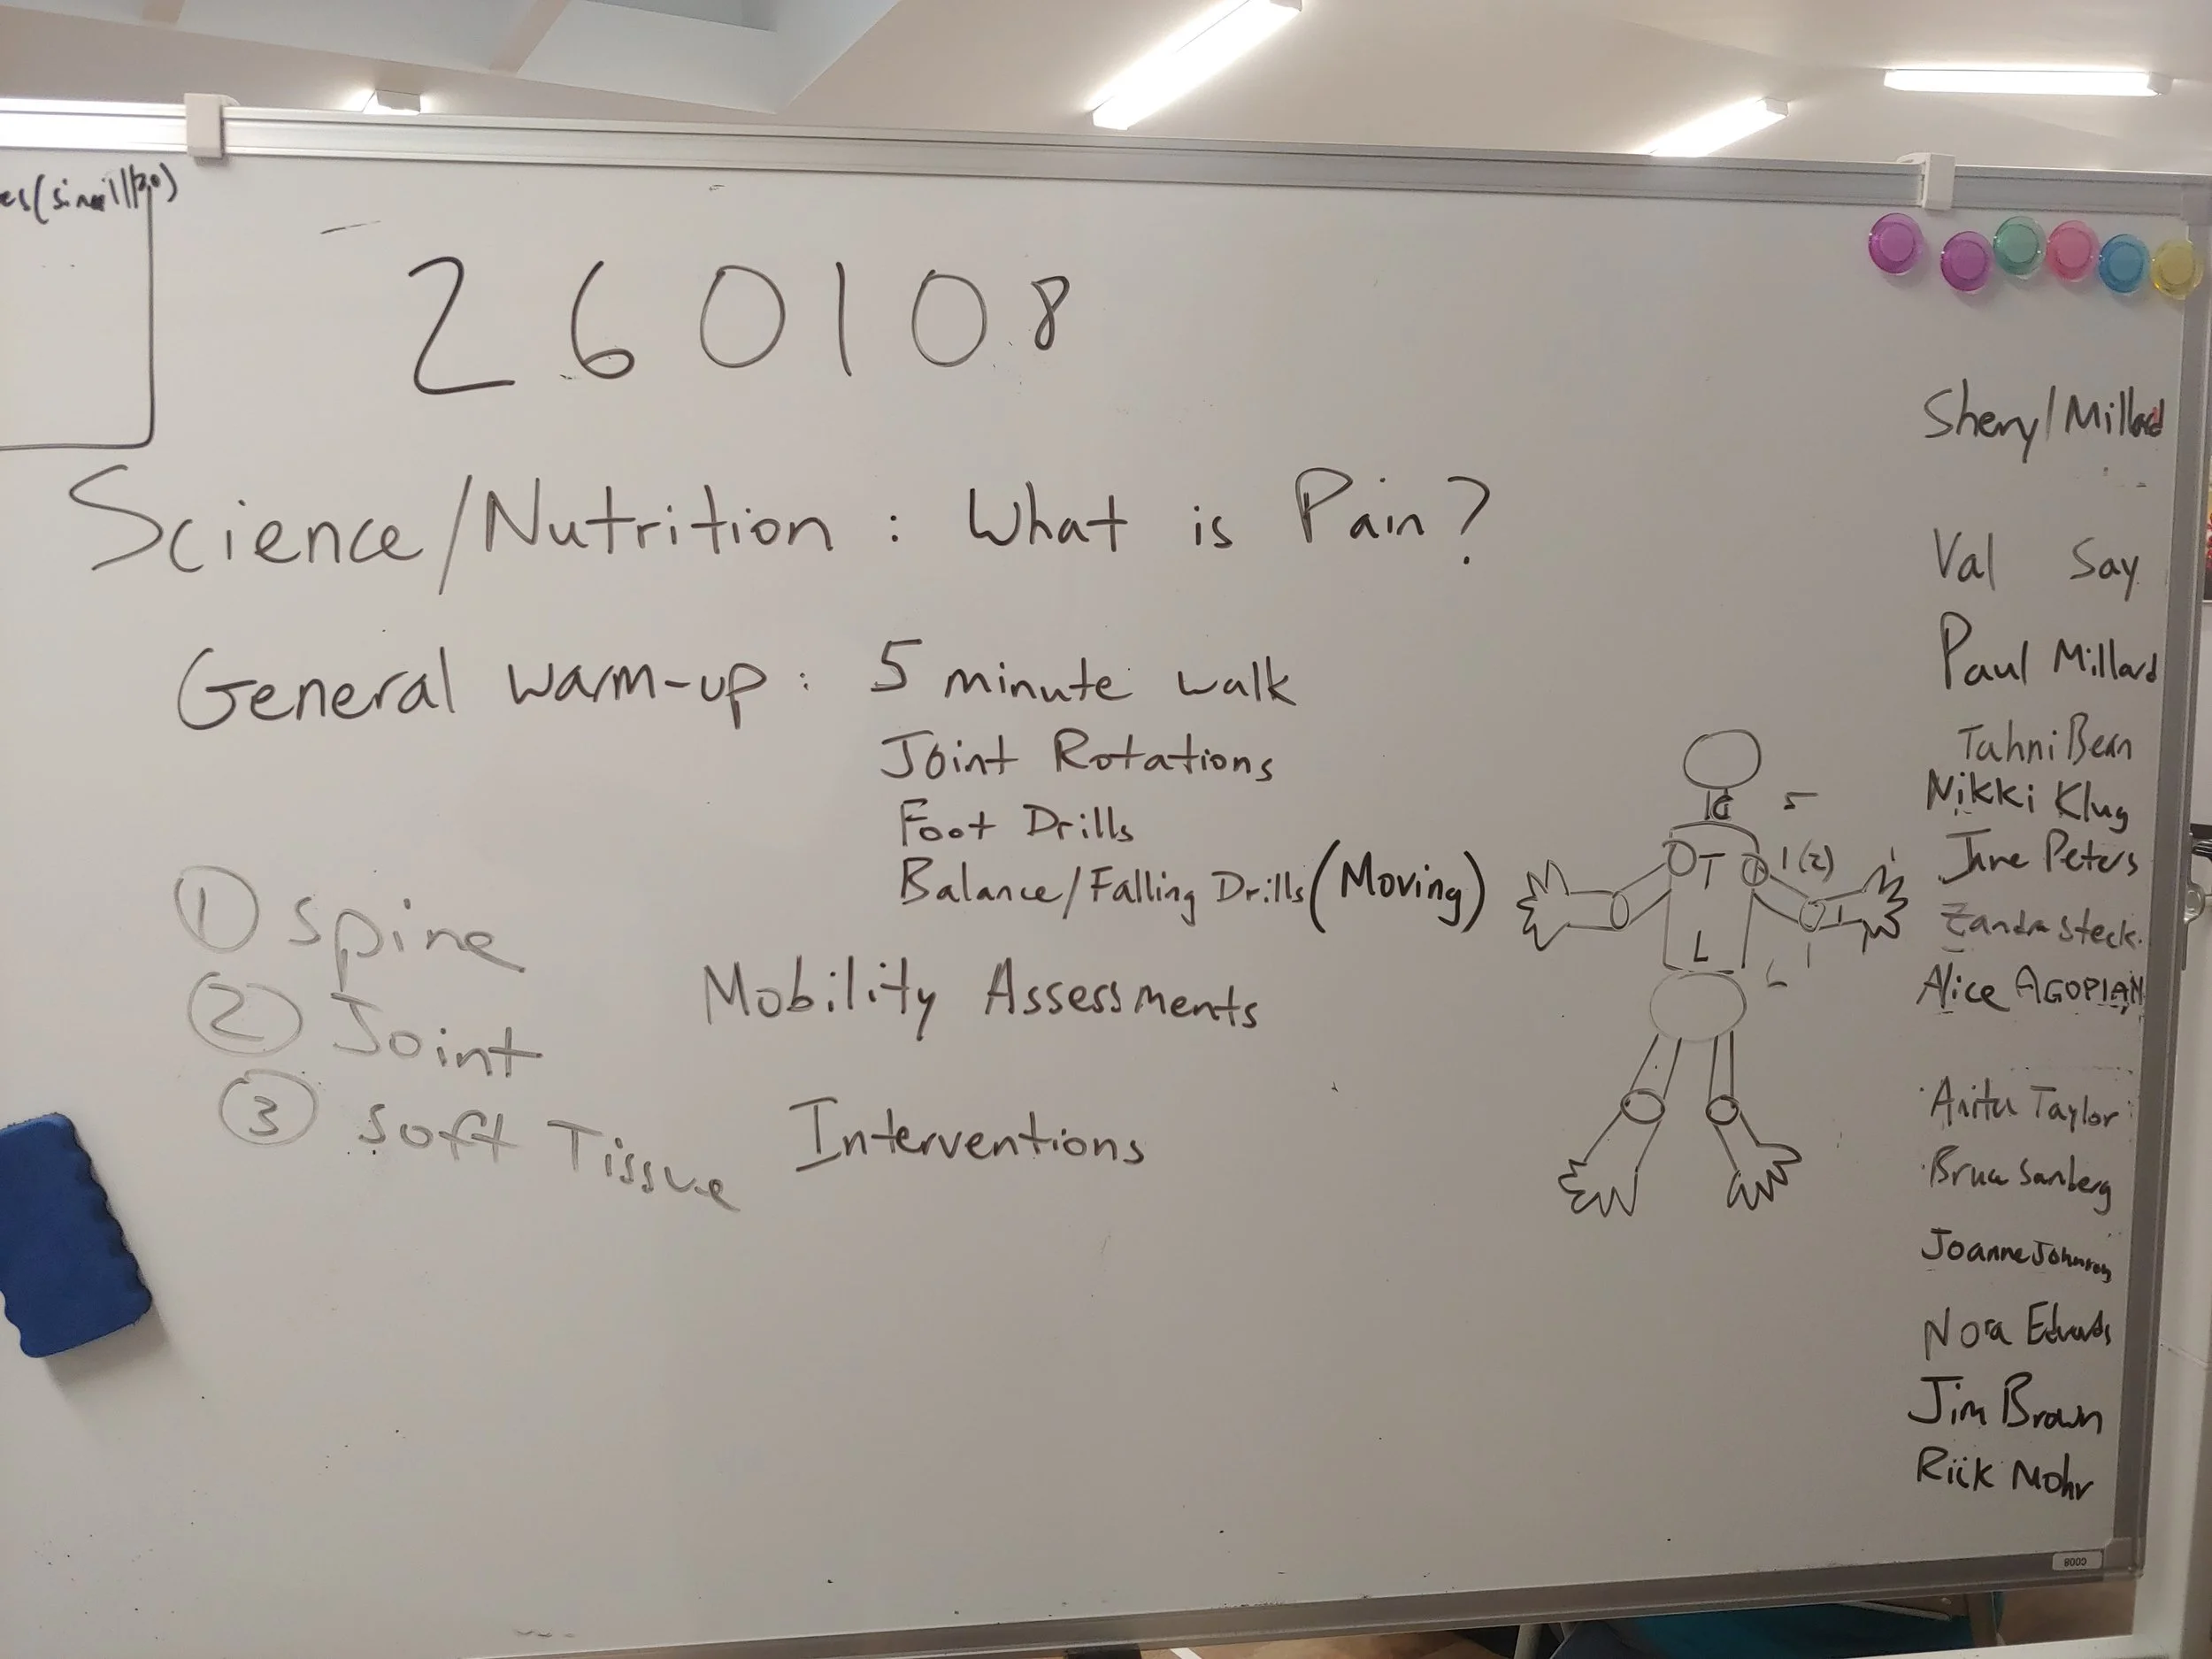 260108
Science/Nutrition : What is Pain?
General warm-up : 5 minute walk
Joint Rotations
Foot Drills
Balance/Falling Drills (Moving)
① Spine
② Joint
③ Soft Tissue
Mobility Assessments
Interventions
C 5
T 1(2)
L
Sheryl Millard
Val Say
Paul Millard
Tahni Bean
Nikki Klug
June Peters
Zandra Steck.
Alice AGOPIAN
Anita Taylor
Bruce Sanberg
Joanne Johnson
Nora Edwards
Jim Brown
Rick Mohr
C008